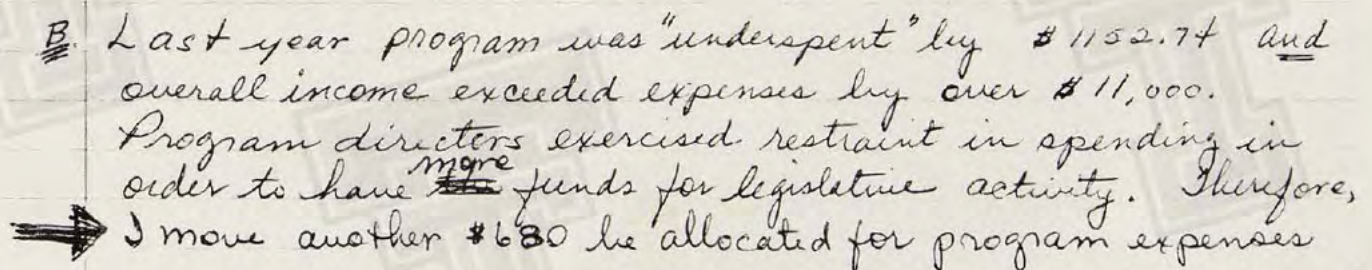 B. Last year program was "underspent" by $1152.74 and
overall income exceeded expenses by over $11,000.
Program directors exercised restraint in spending in
order to have more funds for legislative activity. Therefore,
I move another $680 be allocated for program expenses